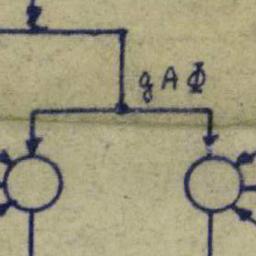 g A Φ